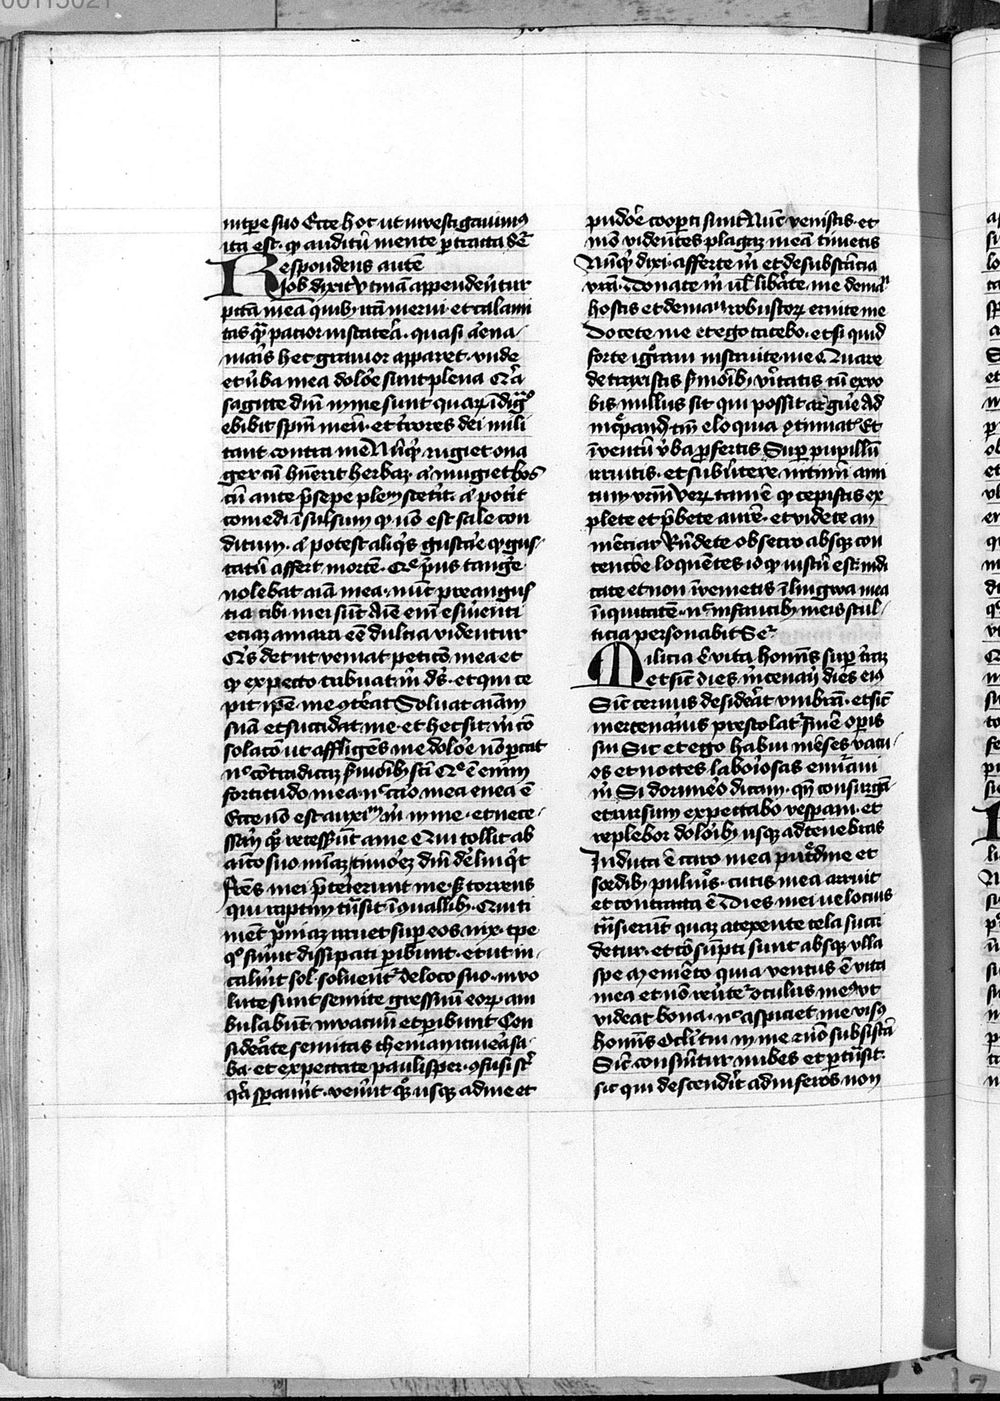 intpe suo Ecce hoc ut investigauimus
ita est. qd auditū mente ptracta Se᷑
Respondens autē
Job dixit Utinā appenderētur
pctā mea quibꝫ irā merui. et calami
tas quā patior in statera. quasi arena
maris hec grauior appareret. vnde
et v̓ba mea dolore sunt plena Quia
sagitte dnī in me sunt quarꝫ īdig̓o
ebibit spm̄ meū. et t̓rores dei mili
tant contra me Nūqd rugiet ona
ger cū hūerit herbaꝫ. aut mugiet bos
cū ante p̄sepe plenū stetit. aut pot̓it
comedi īsulsum qd nō est sale con
ditum. aut potest aliqͥs gustare qd gus-
tatū affert mortē. Que p̓us tang̓e
nolebat aīa mea. nūc pre angus
tia cibi mei sūt Aīe enī esurienti
eciaꝫ amara eē dulcia videntur
Qͥs det ut veniat peticō mea et
qd expecto tribuat m̄ ds̄. et qui ce
pit ipē me ꝯt̓at Soluat manū
suā et succidat me. et hec sit m̄ cō
solacō ut affligēs me dolore nō pcat
nec cōtradicaꝫ s̄monibꝫ sc̄i Que ē enim
fortitudo mea. nec caro mea enea ē
Ecce nō est auxiliū m̄ in me. et nece-
ssarij qꝫ recesserūt a me Qui tollit ab
amīco suo mīam timorē dnī derelinqͥt
Fr̄es mei p̄terierunt me sicut torrens
qui raptim trāsit ī ꝯuallibꝫ. Qui ti
ment pruinaꝫ irruet sup eos nix. tpe
quo fuerīt dissipati pibunt. et ut in-
caluerīt sol. soluent̓ de loco suo. inuo
lute sunt semite gressuū eorꝫ am
bulabūt in vacuū et pibunt Con
siderate semitas theman itinera sa-
ba. et expectate paulisper. ꝯfusi st̄
qꝛ sperauīt. venerūt qꝫ usqꝫ ad me et
pudore coopti sunt Nūc venistis. et
mō videntes plagaꝫ meā timetis
Nūqd dixi. afferte m̄ et de substācia
vrā. donate m̄ ul̓ liberate me de manu
hostis et de manu robustorꝫ eruite me
Docete me et ego tacebo. et si quid
forte ignoraui instruite me Quare
detraxistis s̄monibꝫ v̓itatis cū ex vo
bis nullus sit qui possit arguere Ad
increpandū tm̄ eloquia ꝯcinnatis Et
ī ventū v̓ba profertis Sup pupillū
irruitis. et subuertere nitimini ami
cum vrm̄ Verꝫ tamē qd cepistis ex
plete et p̄bete aurē. et videte an
mentiar Rn̄dete obsecro absqꝫ con
tencōe loquentes id qd iustū est iudi
cate et non īuenietis ī lingwa mea
īiquitatē. nec in faucibꝫ meis stul-
ticia personabit Se᷑
Milicia ē vita homīs sup t̓raꝫ
et sicut dies mercenarij dies eius
Sicut ceruus desiderat vmbrā. et sicut
mercenarius prestolat̓ finē opis
sui Sic et ego habui mēses vacu-
os et noctes laboriosas enumeraui
m̄ Si dormiero dicam. qn̄ consurgā-
et rursum expectabo vesperam. et
replebor doloribꝫ usqꝫ ad tenebras
Induta ē caro mea putredīe et
sordibꝫ pulueris. cutis mea arruit
et contracta ē Dies mei velocius
trāsierūt quaꝫ a texente tela succi
detur. et cōsūpti sunt absqꝫ vlla
spe Memēto quia ventus ē vita
mea et nō reuertet̓ oculus meus ut
videat bona. nec aspiciet me visus
homīs Oculi tui in me et nō subsistā
Sicut consumitur nubes et ptrāsit.
sic qui descenderit ad inferos non